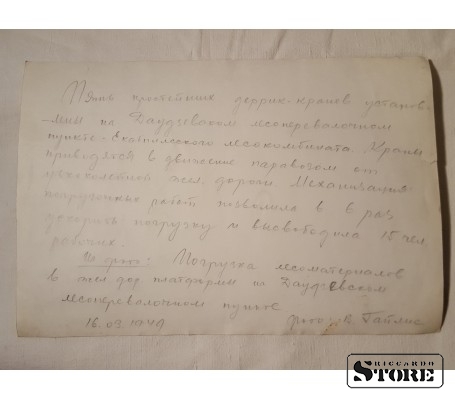 Пять простейших деррик-кранов установ-
-лены на Даудзевском лесоперевалочном
пункте Екабпилсского лесокомбината. Краны
приводятся в движение паровозом от
узкоколейной жел. дороги. Механизация
погрузочных работ позволила в 6 раз
ускорить погрузку и высвободила 15 чел.
рабочих.
На фото: Погрузка лесоматериалов
в жел дор платформы на Даудзевском
лесоперевалочном пункте
16.03.1949 фото В. Гайлис
RICCARDO
STORE